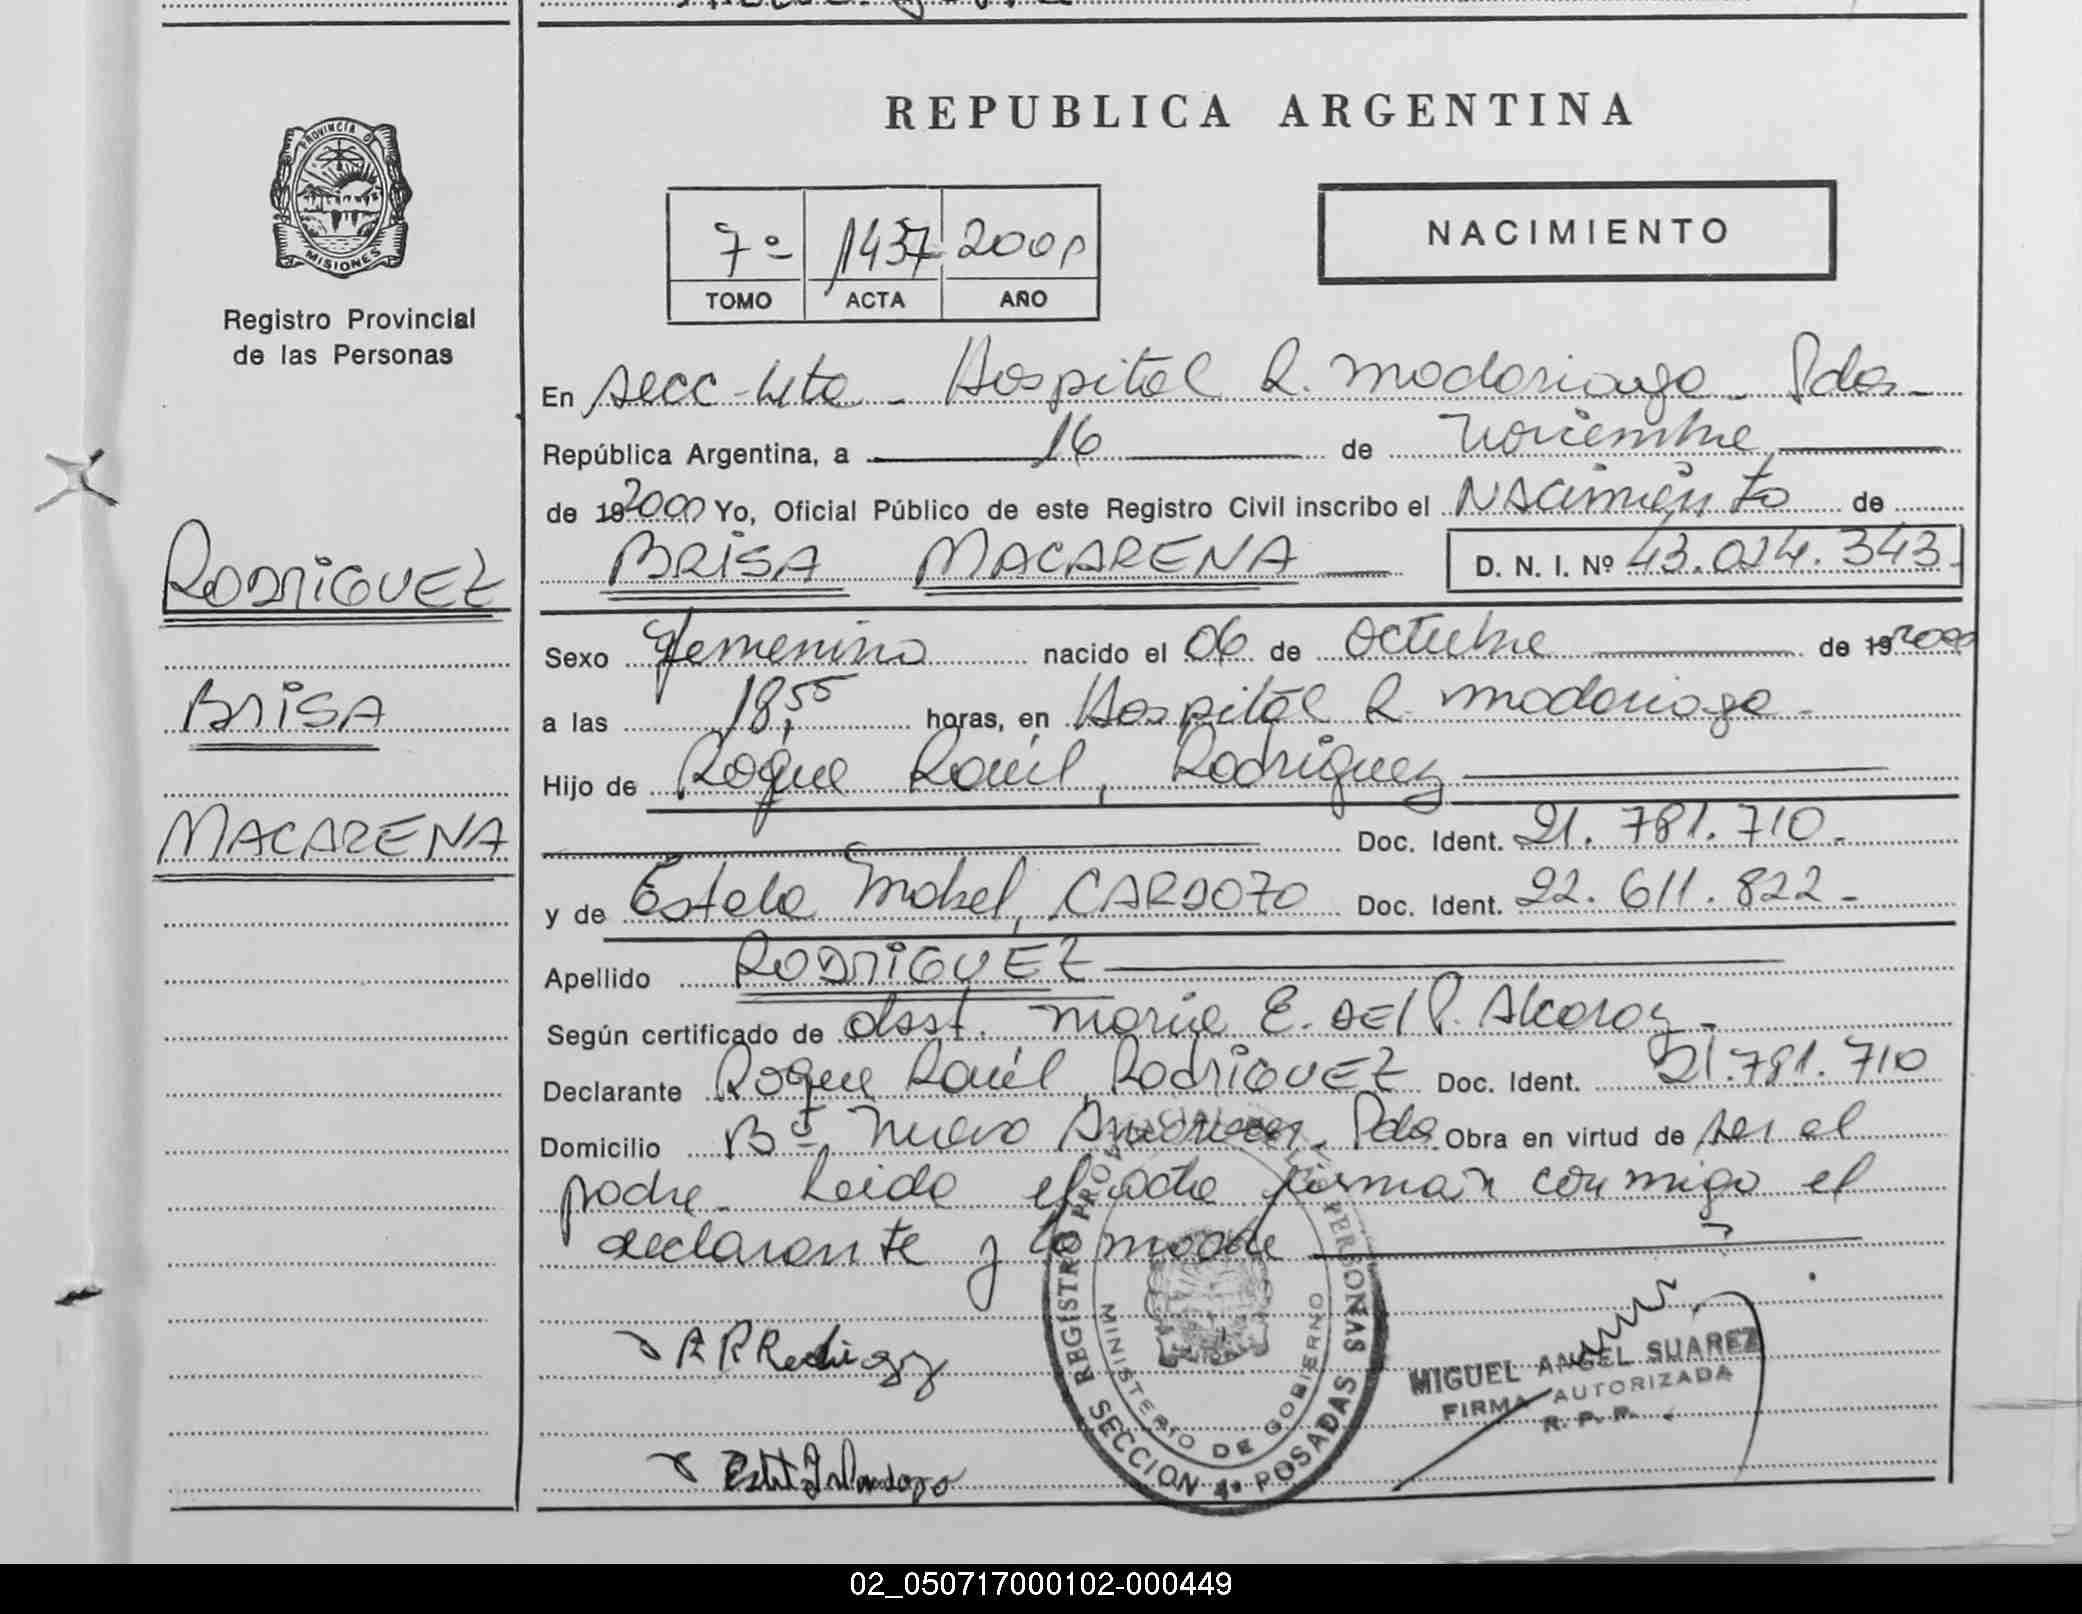 REPUBLICA ARGENTINA
PROVINCIA DE
MISIONES
Registro Provincial
de las Personas
7º 1437 2000
TOMO ACTA AÑO
NACIMIENTO
En secc-4ta - Hospital R. Madariaga - Pdas -
República Argentina, a 16 de Noviembre
de 19 2000 Yo, Oficial Público de este Registro Civil inscribo el Nacimiento de
BRISA MACARENA D. N. I. Nº 43.024.343.
RODRIGUEZ
BRISA
MACARENA
Sexo femenino nacido el 06 de Octubre de 19 2000
a las 18,55 horas, en Hospital R. Madariaga -
Hijo de Roque Raúl, Rodriguez
Doc. Ident. 21.781.710.-
y de Estela Mabel, CARDOZO Doc. Ident. 22.611.822.-
Apellido RODRIGUEZ
Según certificado de obst. Maria E. DEL P. Alcaraz -
Declarante Roque Raúl, RODRIGUEZ Doc. Ident. 21.781.710
Domicilio Bº Nuevo Pdas Obra en virtud de ser el
padre - Leida el acta firman conmigo el
declarante y la madre
REGISTRO PROVINCIAL DE LAS PERSONAS
MINISTERIO DE GOBIERNO
SECCION 4ª POSADAS
MIGUEL ANGEL SUAREZ
FIRMA AUTORIZADA
R. P. P.
02_050717000102-000449